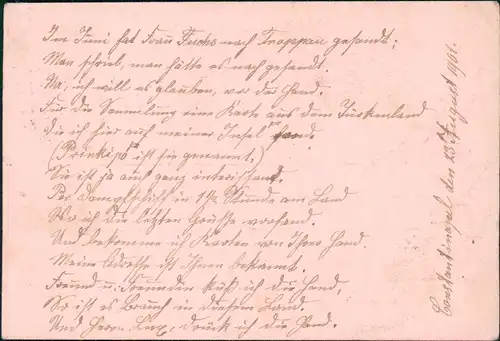 Im Juni hat Frau Fuchs nach Troppau gesandt;
Man schrieb, man hätte es nach gesandt.
Na, ich will es glauben, vor der Hand.
Für die Sammlung eine Karte aus dem Türkenland
Die ich hier auf meiner Insel fand.
(Prinkipo ist sie genannt,)
Sie ist ja auch ganz interessant.
Per Dampfschiff in 1½ Stunde am Land
Wo ich die letzten Grüsse vorfand.
Und bekomme ich Karten von Ihrer Hand.
Meine Adresse ist Ihnen bekannt.
Freund u. Freundin küß ich die Hand,
So ist es Brauch in diesem Land.
Und Herrn Lux, drück ich die Hand.
Constantinopel den 23 August 1901.